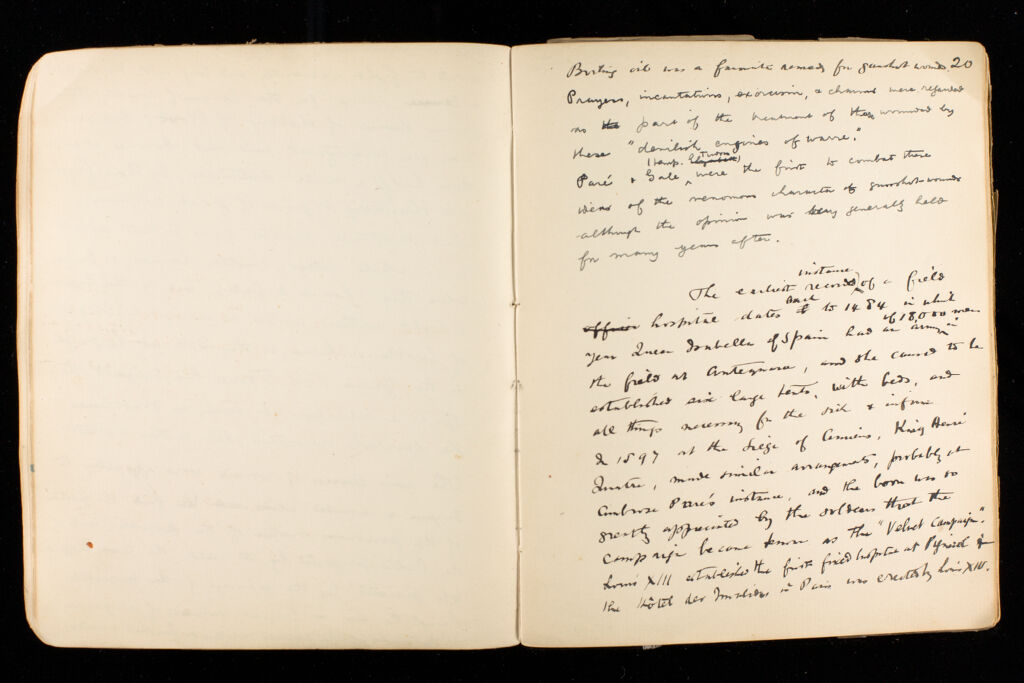 Boiling oil was a favorite remedy for gunshot wounds. 20
Prayers, incantations, exorcism, & charms were regarded
as the part of the treatment of those wounded by
these "devilish engines of warre."
(temp. Tudor)
Paré & Gale were the first to combat these
ideas of the venomous character of gunshot-wounds
although the opinion was very generally held
for many years after.
instance
The earliest record of a field
back
hospital dates to 1484 in which
of 18,000 men
year Queen Isabella of Spain had an army in
the field at Antequara, and she caused to be
established six large tents, with beds, and
all things necessary for the sick & infirm
& 1597 at the Siege of Amiens, King Henri
Quatre, made similar arrangements, probably at
Ambrose Paré's instance, and the boon was so
greatly appreciated by the soldiers that the
campaign became known as the "Velvet Campaign".
Louis XIII established the first fixed hospital at &
the Hôtel des Invalides in Paris was erected by Louis XIV.